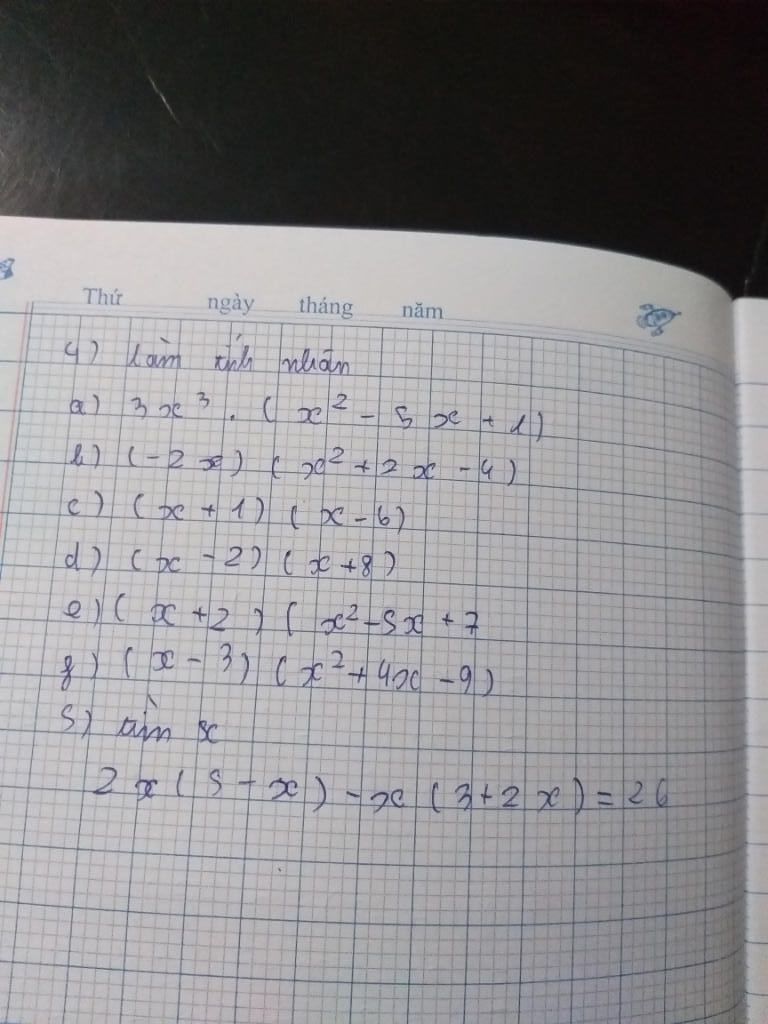 Thứ ngày tháng năm
4) Làm tính nhân
a) 3x³ . ( x² - 5x + 1)
b) (-2x) ( x² + 2x - 4)
c) (x + 1) ( x - 6)
d) (x - 2) (x + 8)
e) ( x + 2 ) ( x² - 5x + 7
f) (x - 3) (x² + 4x - 9)
5) tìm x
2x ( 5 - x) - x ( 3 + 2x) = 26